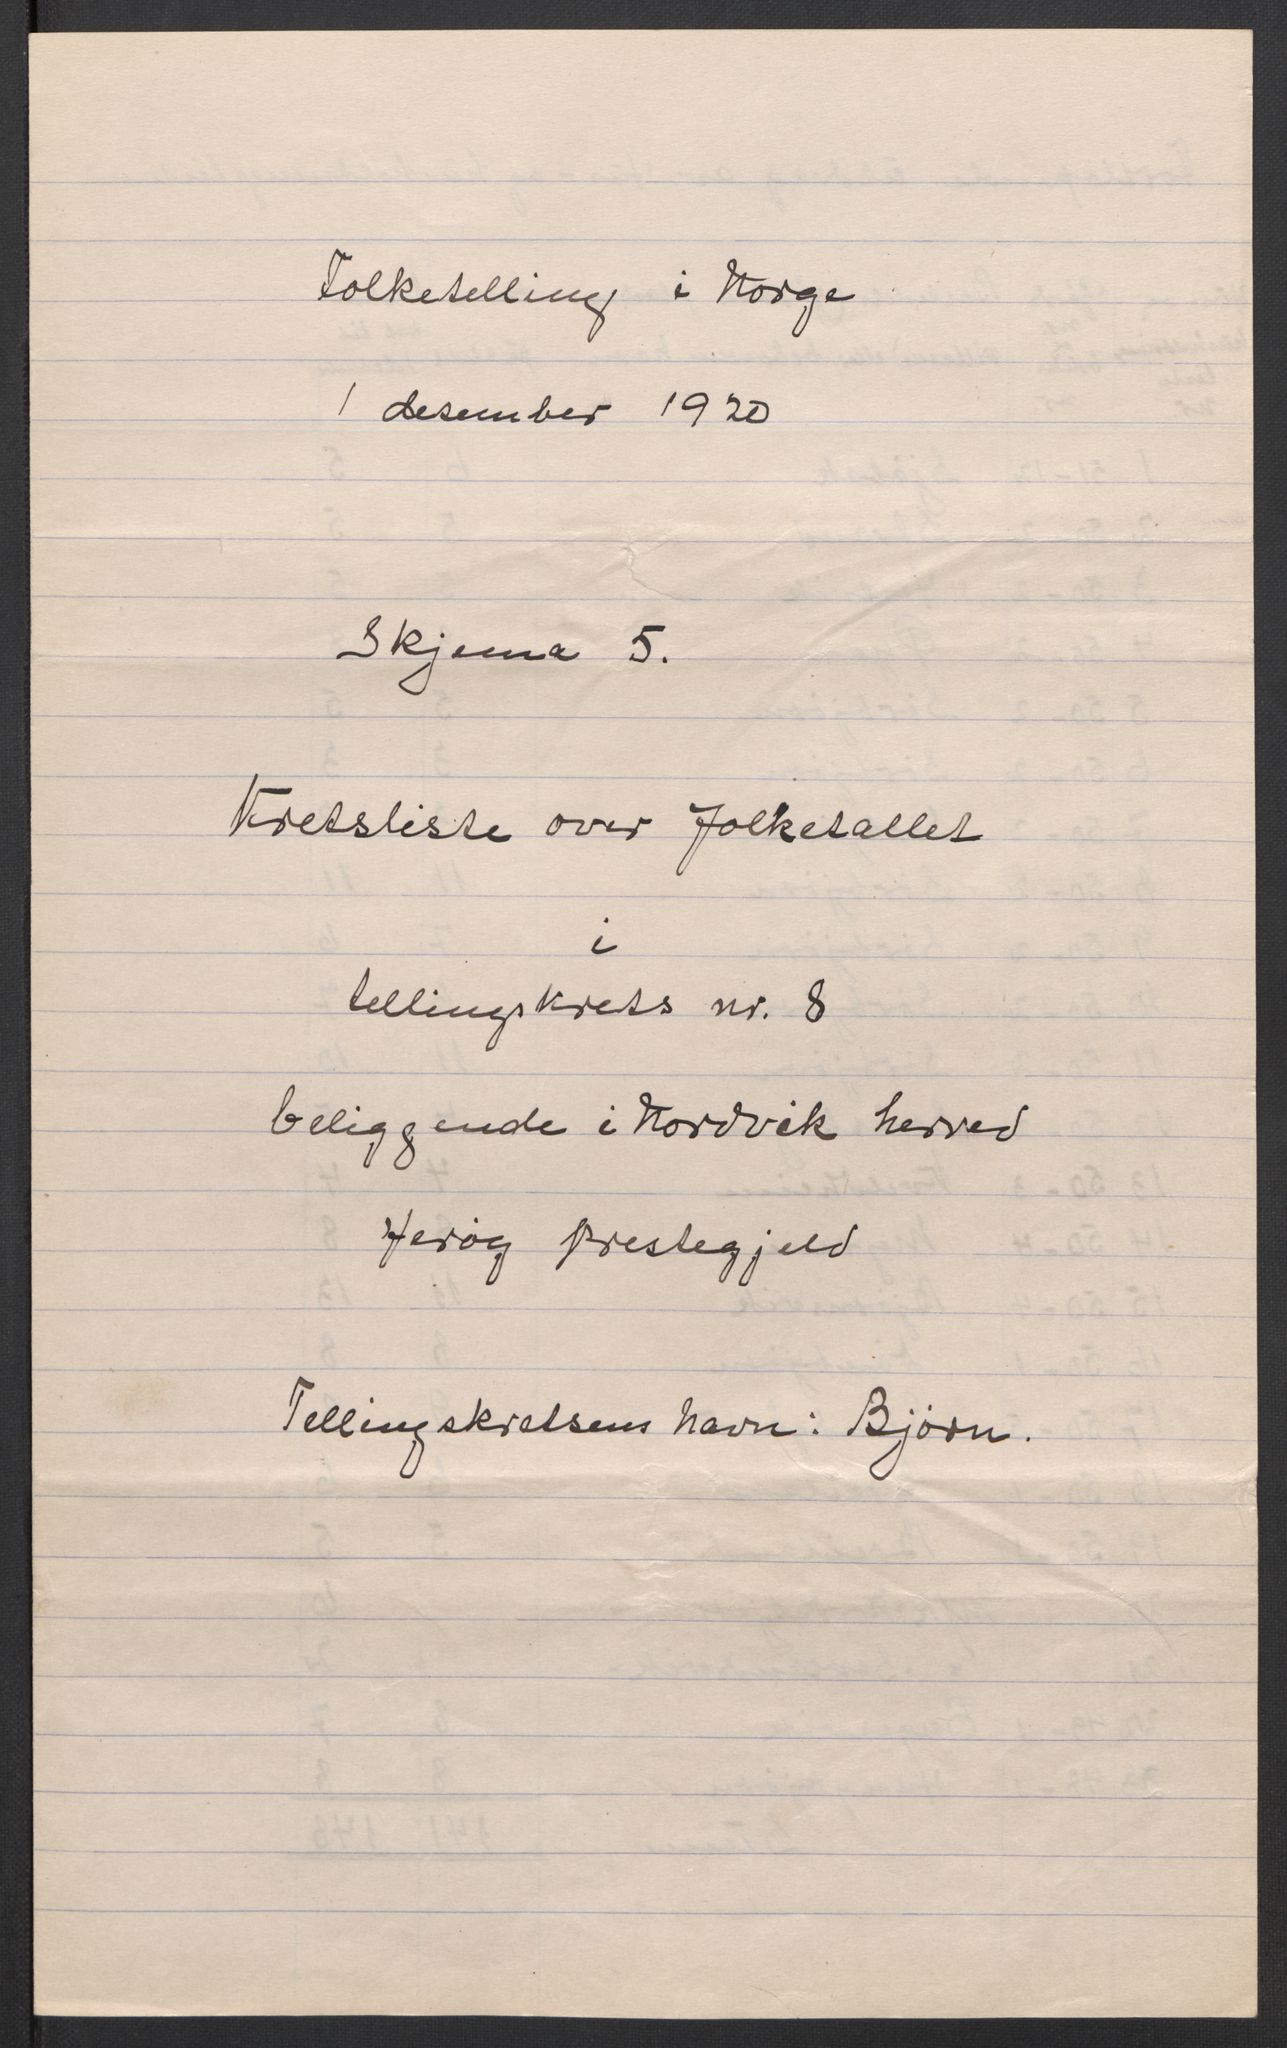 Folketelling i Norge
1 desember 1920
Skjema 5.
Kretsliste over folketallet
i
tellingskrets nr. 8
beliggende i Nordvik herred
Herøy prestegjeld
Tellingskretsens navn: Bjørn.